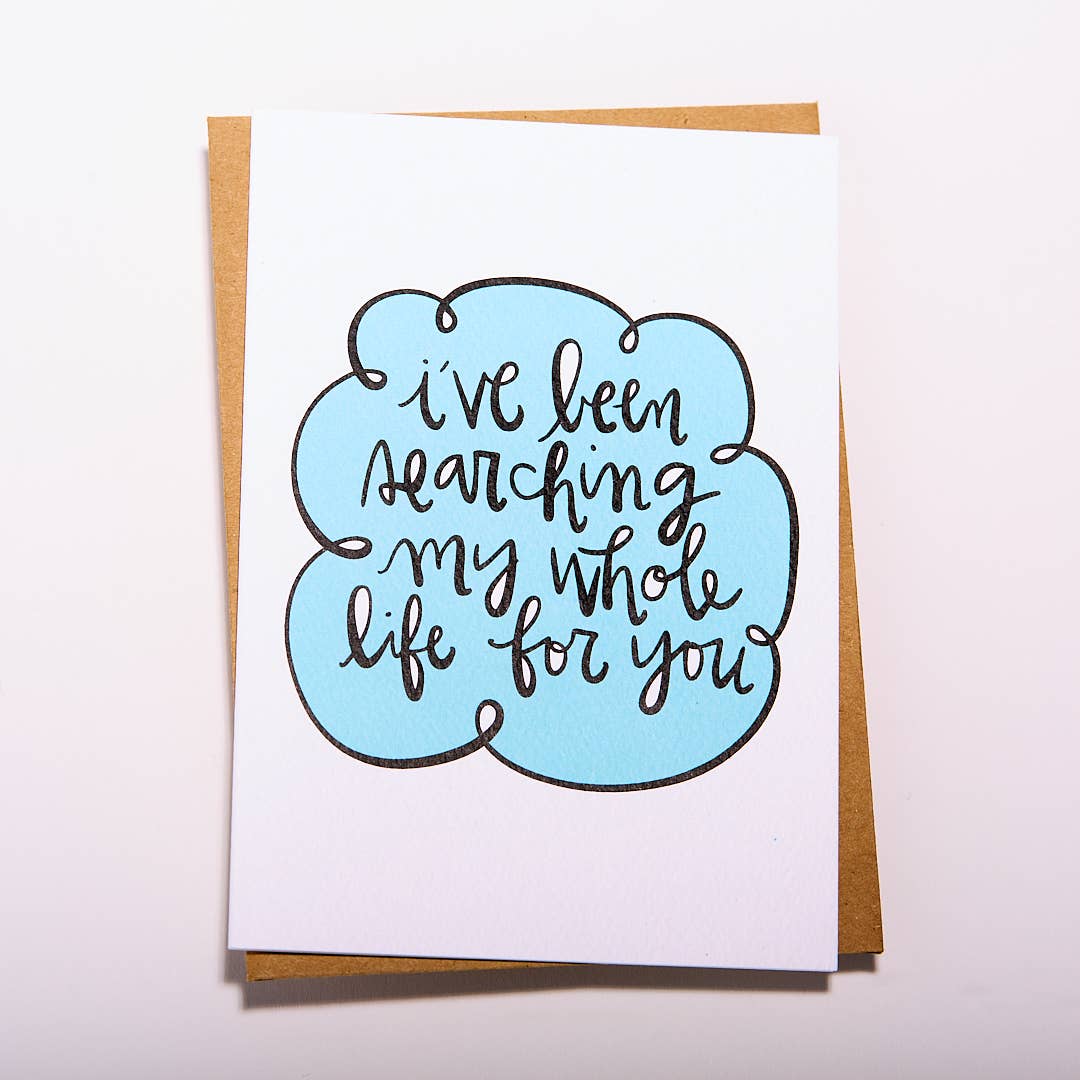 i've been
searching
my whole
life for you